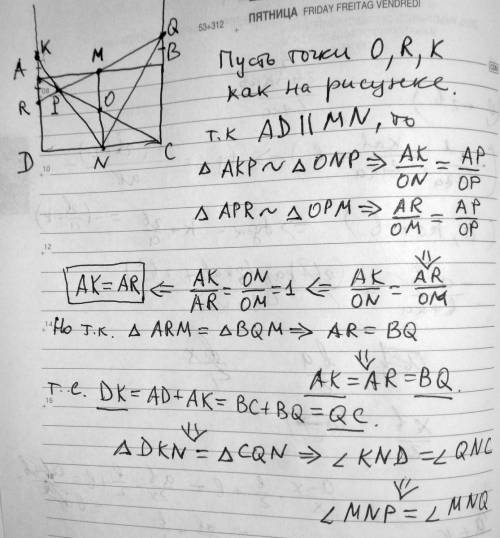 53+312 ПЯТНИЦА FRIDAY FREITAG VENDREDI
K
M
Q
A
B
R
P
O
D
N
C
Пусть точки O, R, K
как на рисунке.
т.к AD || MN, то
Δ AKP ~ Δ ONP ⇒ AK/ON = AP/OP
Δ APR ~ Δ OPM ⇒ AR/OM = AP/OP
⇓
AK = AR ⇐ AK/AR = ON/OM = 1 ⇐ AK/ON = AR/OM
Но т.к. Δ ARM = Δ BQM ⇒ AR = BQ
⇓
AK = AR = BQ.
т.е. DK = AD + AK = BC + BQ = QC.
⇓
Δ DKN = Δ CQN ⇒ ∠ KND = ∠ QNC
⇓
∠ MNP = ∠ MNQ
10
12
14
16
18